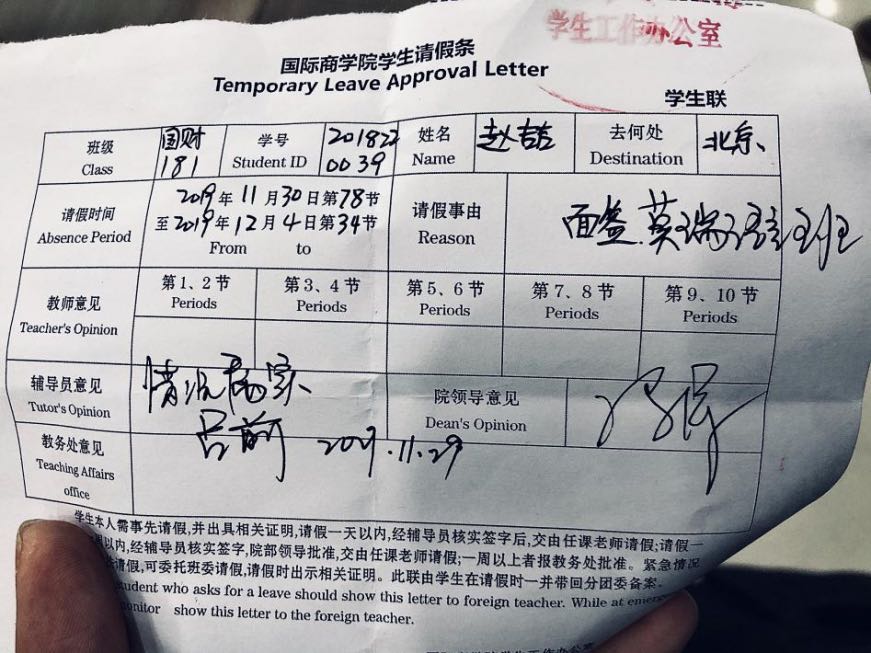 学生工作办公室
国际商学院学生请假条
Temporary Leave Approval Letter
学生联
班级 国财 学号 201822 姓名 赵喆 去何处 北京
Class 181 Student ID 0039 Name Destination
请假时间 2019年11月30日第78节 请假事由 面签.莫瑞语言班
至2019年12月4日第34节
Absence Period From to Reason
教师意见 第1、2节 第3、4节 第5、6节 第7、8节 第9、10节
Teacher's Opinion Periods Periods Periods Periods Periods
辅导员意见 情况属实 院领导意见
Tutor's Opinion Dean's Opinion
教务处意见 2019.11.29
Teaching Affairs
office
学生本人需事先请假,并出具相关证明,请假一天以内,经辅导员核实签字后,交由任课老师请假;请假一
周以内,经辅导员核实签字,院部领导批准,交由任课老师请假;一周以上者报教务处批准。紧急情况
请假,可委托班委请假,请假时出示相关证明。此联由学生在请假时一并带回分团委备案。
student who asks for a leave should show this letter to foreign teacher. While at
monitor show this letter to the foreign teacher.